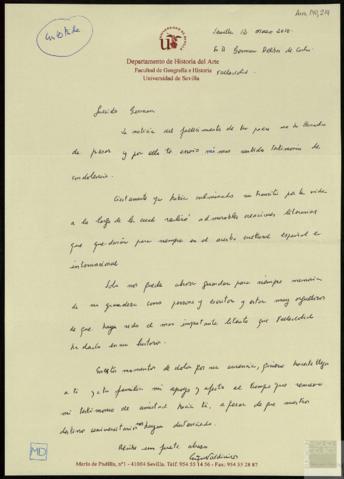 AMD, 141, 214
Contestada
UNIVERSIDAD DE SEVILLA
Sevilla 12 Marzo 2010
Departamento de Historia del Arte
Facultad de Geografía e Historia
Universidad de Sevilla
Sr. D. German Delibes de Castro
Valladolid.
Querido German
La noticia del fallecimiento de tu padre me ha llenado
de pesar y por ello te envio mi mas sentido testimonio de
condolencia.
Ciertamente ya habia culminado su transito por la vida
a lo largo de la cual realizó admirables creaciones literarias
que quedarán para siempre en el acervo cultural español e
internacional
Solo nos queda ahora guardar para siempre memoria
de su grandeza como persona y escritor y estar muy orgullosos
de que haya sido el mas importante literato que Valladolid
ha dado en su historia.
En estos momentos de dolor por su ausencia, quiero hacerte llegar
a ti y a tu familia mi apoyo y afecto al tiempo que renuevo
mi testimonio de amistad hacia ti, a pesar de que nuestros
destinos universitarios nos hayan distanciado.
Recibe un fuerte abrazo
Enrique Valdivieso
MD
María de Padilla, nº1 - 41004 Sevilla. Télf. 954 55 14 56 - Fax: 954 55 28 87